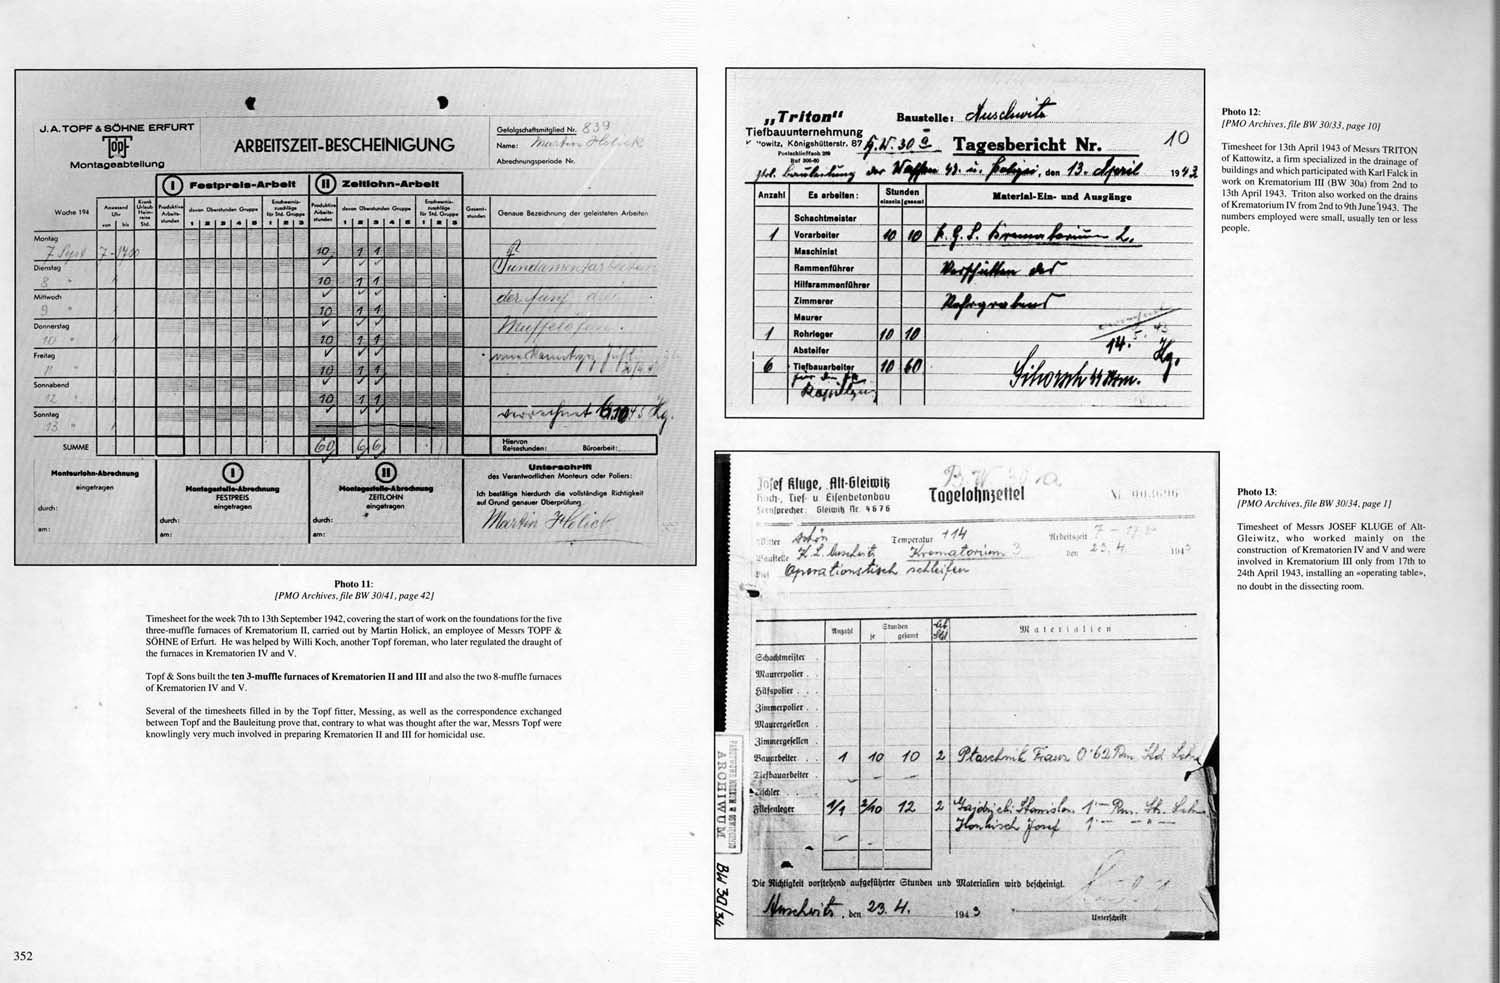 J.A. TOPF & SÖHNE ERFURT
TOPF
Montageabteilung
ARBEITSZEIT-BESCHEINIGUNG
Gefolgschaftsmitglied Nr. 839
Name: Martin Holick
Abrechnungsperiode Nr.
Woche 194
Anwesend Uhr
von bis
Krank Urlaub Heimreise Std.
I Festpreis-Arbeit
Produktive Arbeitsstunden
davon Überstunden Gruppe
1 2 3 4 5
Erschwerniszuschläge für Std. Gruppe
1 2 3
II Zeitlohn-Arbeit
Produktive Arbeitsstunden
davon Überstunden Gruppe
1 2 3 4 5
Erschwerniszuschläge für Std. Gruppe
1 2 3
Gesamtstunden
Genaue Bezeichnung der geleisteten Arbeiten
Montag
7. Sept 7-1700 10 1 1
Dienstag
8 " 10 1 1
Fundamentarbeiten
Mittwoch
9 " 10 1 1
der fünf drei
Donnerstag
10 " 10 1 1
Muffelöfen.
Freitag
11 " 10 1 1
Sonnabend
12 " 10 1 1
Sonntag
13 "
verrechnet
SUMME 60 6 6
Hiervon
Reisestunden: Büroarbeit:
Monteurlohn-Abrechnung
eingetragen
durch:
am:
I
Montagestelle-Abrechnung
FESTPREIS
eingetragen
durch:
am:
II
Montagestelle-Abrechnung
ZEITLOHN
eingetragen
durch:
am:
Unterschrift
des Verantwortlichen Monteurs oder Poliers:
Ich bestätige hierdurch die vollständige Richtigkeit
auf Grund genauer Überprüfung.
Martin Holick
Photo 11:
[PMO Archives, file BW 30/41, page 42]
Timesheet for the week 7th to 13th September 1942, covering the start of work on the foundations for the five
three-muffle furnaces of Krematorium II, carried out by Martin Holick, an employee of Messrs TOPF &
SÖHNE of Erfurt. He was helped by Willi Koch, another Topf foreman, who later regulated the draught of
the furnaces in Krematorien IV and V.
Topf & Sons built the ten 3-muffle furnaces of Krematorien II and III and also the two 8-muffle furnaces
of Krematorien IV and V.
Several of the timesheets filled in by the Topf fitter, Messing, as well as the correspondence exchanged
between Topf and the Bauleitung prove that, contrary to what was thought after the war, Messrs Topf were
knowlingly very much involved in preparing Krematorien II and III for homicidal use.
352
„Triton"
Tiefbauunternehmung
owitz, Königshütterstr. 87
Baustelle: Auschwitz
B.W. 30 a
Tagesbericht Nr. 10
Bauleitung der Waffen SS. u. Polizei, den 13. April 1943
Anzahl
Es arbeiten:
Stunden
einzeln gesamt
Material-Ein- und Ausgänge
Schachtmeister
1 Vorarbeiter 10 10 K.G.L. Krematorium 2.
Maschinist
Rammenführer
Verschütten des
Hilfsrammenführer
Zimmerer
Rohrgrabens
Maurer
1 Rohrleger 10 10
14. 5. 43
Absteifer
6 Tiefbauarbeiter 10 60
Photo 12:
[PMO Archives, file BW 30/33, page 10]
Timesheet for 13th April 1943 of Messrs TRITON
of Kattowitz, a firm specialized in the drainage of
buildings and which participated with Karl Falck in
work on Krematorium III (BW 30a) from 2nd to
13th April 1943. Triton also worked on the drains
of Krematorium IV from 2nd to 9th June 1943. The
numbers employed were small, usually ten or less
people.
B.W. 30/a
Josef Kluge, Alt-Gleiwitz
Hoch-, Tief- u. Eisenbetonbau
Fernsprecher: Gleiwitz Nr. 4676
Tagelohnzettel
Wetter schön Temperatur +14 Arbeitszeit
Baustelle K.L. Auschwitz Krematorium 3 den 23.4 1943
Operationstisch schleifen
Anzahl
Stunden
je gesamt
Materialien
Schachtmeister
Maurerpolier
Hilfspolier
Zimmerpolier
Maurergesellen
Zimmergesellen
Bauarbeiter 1 10 10 2 Ptaschnik Franz 0'62 Rm Std. Lohn
Tiefbauarbeiter
Tischler
Fliesenleger 1/1 2/10 12 2
Josef
Die Richtigkeit vorstehend aufgeführter Stunden und Materialien wird bescheinigt.
Auschwitz, den 23. 4. 1943
Unterschrift
ARCHIWUM
BW 30/34
Photo 13:
[PMO Archives, file BW 30/34, page 1]
Timesheet of Messrs JOSEF KLUGE of Alt-
Gleiwitz, who worked mainly on the
construction of Krematorien IV and V and were
involved in Krematorium III only from 17th to
24th April 1943, installing an «operating table»,
no doubt in the dissecting room.